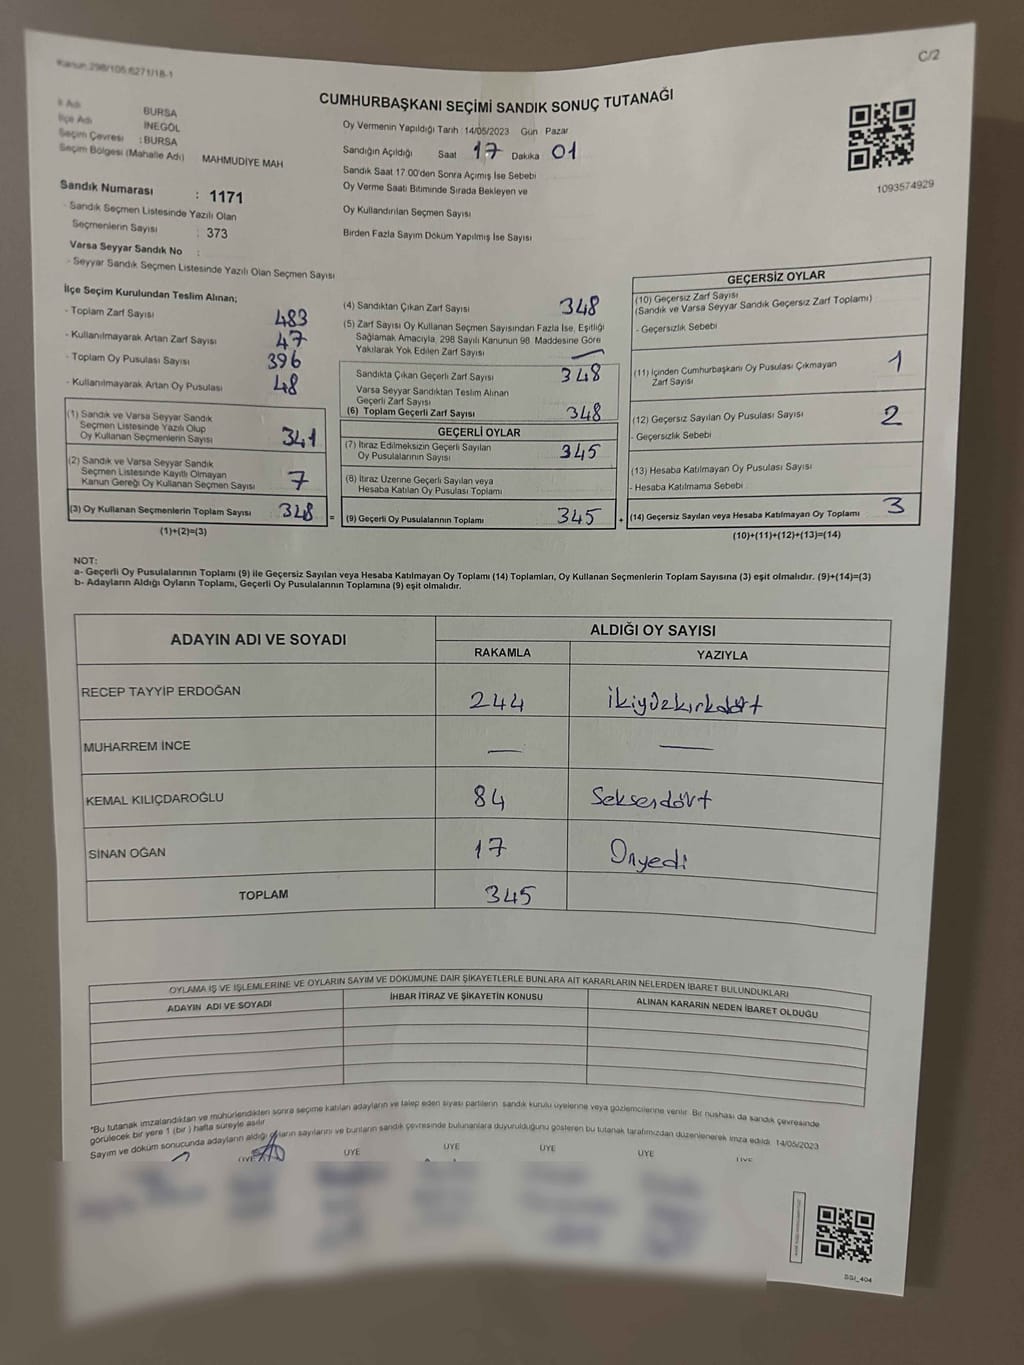 Kanun:298/105;6271/18-1
C/2
CUMHURBAŞKANI SEÇİMİ SANDIK SONUÇ TUTANAĞI
İl Adı BURSA
İlçe Adı İNEGÖL
Seçim Çevresi : BURSA
Seçim Bölgesi (Mahalle Adı) MAHMUDİYE MAH
Oy Vermenin Yapıldığı Tarih :14/05/2023 Gün Pazar
Sandığın Açıldığı Saat 17 Dakika 01
Sandık Saat 17:00'den Sonra Açımış İse Sebebi
Oy Verme Saati Bitiminde Sırada Bekleyen ve
Oy Kullandırılan Seçmen Sayısı
Birden Fazla Sayım Döküm Yapılmış İse Sayısı
1093574929
Sandık Numarası : 1171
- Sandık Seçmen Listesinde Yazılı Olan
Seçmenlerin Sayısı : 373
Varsa Seyyar Sandık No :
- Seyyar Sandık Seçmen Listesinde Yazılı Olan Seçmen Sayısı
İlçe Seçim Kurulundan Teslim Alınan;
- Toplam Zarf Sayısı 483
- Kullanılmayarak Artan Zarf Sayısı 47
- Toplam Oy Pusulası Sayısı 396
- Kullanılmayarak Artan Oy Pusulası 48
(1) Sandık ve Varsa Seyyar Sandık
Seçmen Listesinde Yazılı Olup
Oy Kullanan Seçmenlerin Sayısı 341
(2) Sandık ve Varsa Seyyar Sandık
Seçmen Listesinde Kayıtlı Olmayan
Kanun Gereği Oy Kullanan Seçmen Sayısı 7
(3) Oy Kullanan Seçmenlerin Toplam Sayısı 348 =
(1)+(2)=(3)
(4) Sandıktan Çıkan Zarf Sayısı 348
(5) Zarf Sayısı Oy Kullanan Seçmen Sayısından Fazla İse, Eşitliği
Sağlamak Amacıyla, 298 Sayılı Kanunun 98. Maddesine Göre
Yakılarak Yok Edilen Zarf Sayısı —
Sandıkta Çıkan Geçerli Zarf Sayısı 348
Varsa Seyyar Sandıktan Teslim Alınan
Geçerli Zarf Sayısı
(6) Toplam Geçerli Zarf Sayısı 348
GEÇERLİ OYLAR
(7) İtiraz Edilmeksizin Geçerli Sayılan
Oy Pusulalarının Sayısı 345
(8) İtiraz Üzerine Geçerli Sayılan veya
Hesaba Katılan Oy Pusulası Toplamı
(9) Geçerli Oy Pusulalarının Toplamı 345 +
GEÇERSİZ OYLAR
(10) Geçersiz Zarf Sayısı
(Sandık ve Varsa Seyyar Sandık Geçersiz Zarf Toplamı)
- Geçersizlik Sebebi
(11) İçinden Cumhurbaşkanı Oy Pusulası Çıkmayan
Zarf Sayısı 1
(12) Geçersiz Sayılan Oy Pusulası Sayısı 2
- Geçersizlik Sebebi
(13) Hesaba Katılmayan Oy Pusulası Sayısı
- Hesaba Katılmama Sebebi
(14) Geçersiz Sayılan veya Hesaba Katılmayan Oy Toplamı 3
(10)+(11)+(12)+(13)=(14)
NOT:
a- Geçerli Oy Pusulalarının Toplamı (9) ile Geçersiz Sayılan veya Hesaba Katılmayan Oy Toplamı (14) Toplamları, Oy Kullanan Seçmenlerin Toplam Sayısına (3) eşit olmalıdır. (9)+(14)=(3)
b- Adayların Aldığı Oyların Toplamı, Geçerli Oy Pusulalarının Toplamına (9) eşit olmalıdır.
ADAYIN ADI VE SOYADI ALDIĞI OY SAYISI
RAKAMLA YAZIYLA
RECEP TAYYİP ERDOĞAN 244 ikiyüzkırkdört
MUHARREM İNCE — —
KEMAL KILIÇDAROĞLU 84 Seksendört
SİNAN OĞAN 17 Onyedi
TOPLAM 345
OYLAMA İŞ VE İŞLEMLERİNE VE OYLARIN SAYIM VE DÖKÜMÜNE DAİR ŞİKAYETLERLE BUNLARA AİT KARARLARIN NELERDEN İBARET BULUNDUKLARI
ADAYIN ADI VE SOYADI İHBAR İTİRAZ VE ŞİKAYETİN KONUSU ALINAN KARARIN NEDEN İBARET OLDUĞU
*Bu tutanak imzalandıktan ve mühürlendikten sonra seçime katılan adayların ve talep eden siyasi partilerin sandık kurulu üyelerine veya gözlemcilerine verilir. Bir nushası da sandık çevresinde
görülecek bir yere 1 (bir) hafta süreyle asılır
Sayım ve döküm sonucunda adayların aldığı oyların sayılarını ve bunların sandık çevresinde bulunanlara duyurulduğunu gösteren bu tutanak tarafımızdan düzenlenerek imza edildi. 14/05/2023
ÜYE ÜYE ÜYE ÜYE ÜYE
SSI_404